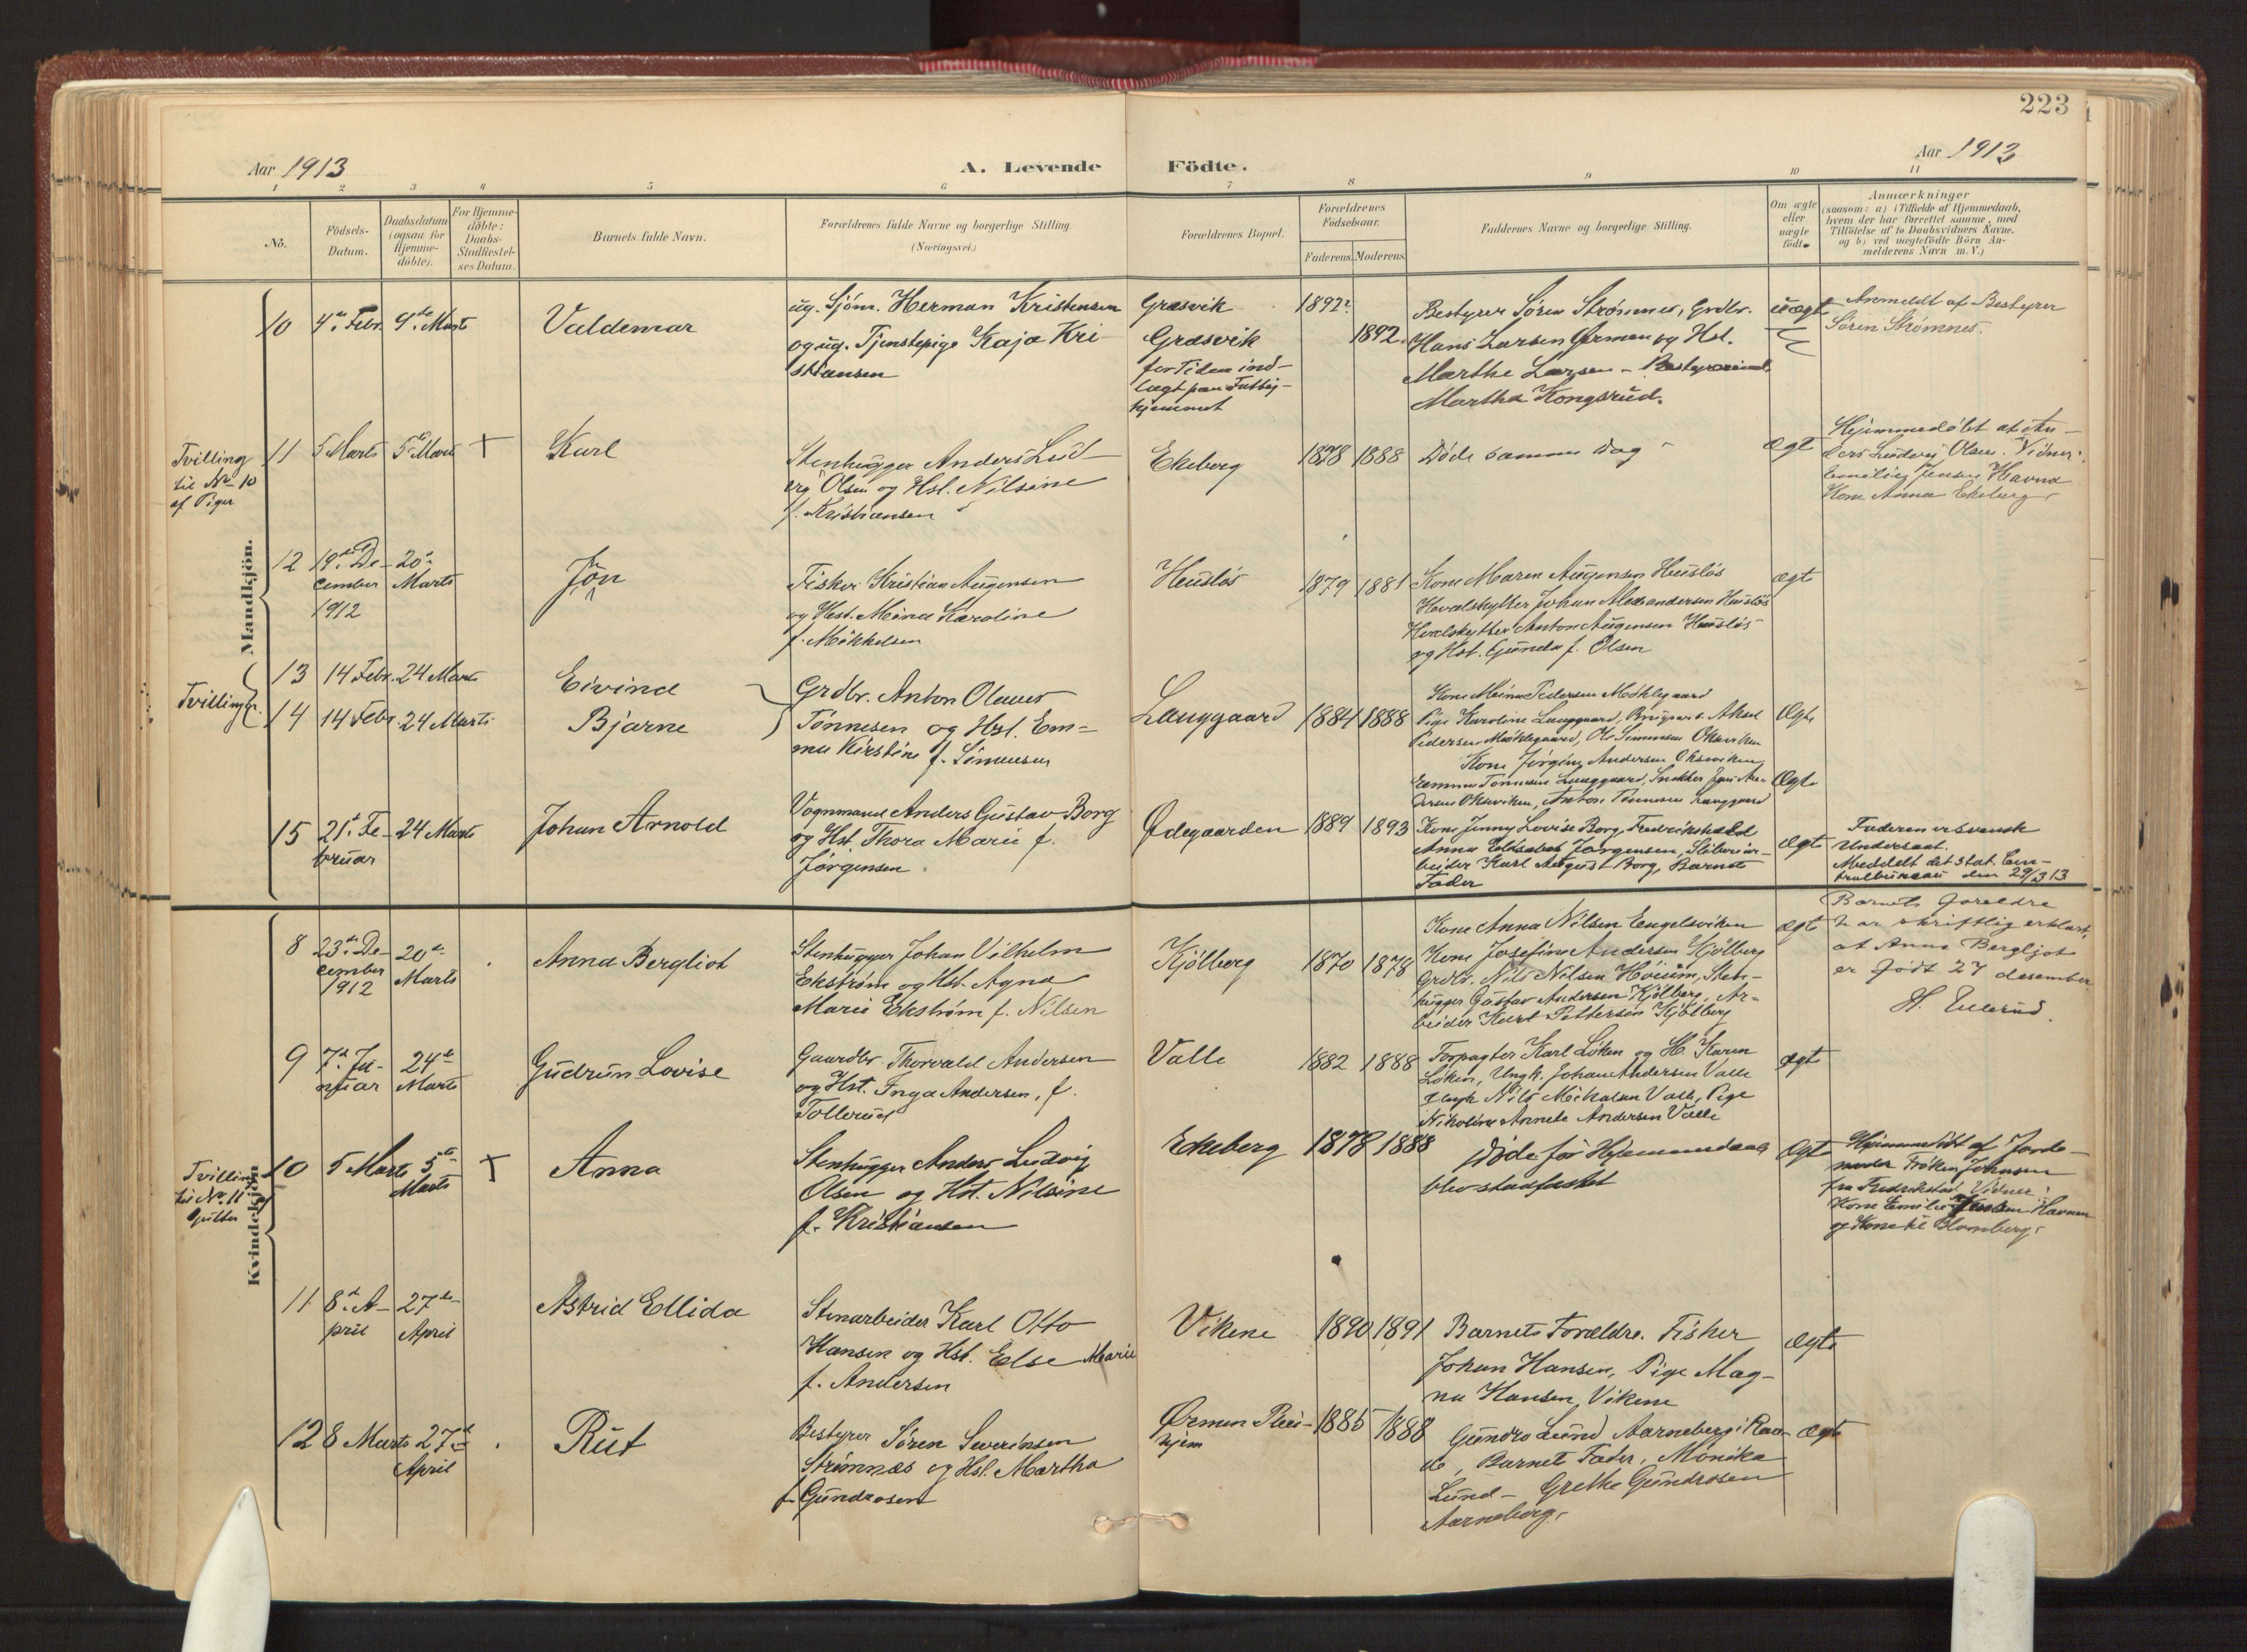 223
Aar 1913
A. Levende Födte.
Aar 1913
1 2 3 4 5 6 7 8 9 10 11
No.
Födsels-
Datum.
Daabsdatum
(ogsaa for
Hjemme-
döbte).
For Hjemme-
döbte:
Daabs-
Stadfæstel-
ses Datum.
Barnets fulde Navn.
Forældrenes fulde Navne og borgerlige Stilling.
(Næringsvei.)
Forældrenes Bopæl.
Forældrenes
Födselsaar.
Faderens. Moderens.
Faddernes Navne og borgerlige Stilling.
Om ægte
eller
uægte
födt.
Anmærkninger
(saasom: a) i Tilfælde af Hjemmedaab,
hvem der har forrettet samme, med
Tilföielse af to Daabsvidners Navne,
og b) ved uægtefödte Börn An-
melderens Navn m. V.)
Mandkjön.
10 4de Febr. 9de Marts
Valdemar
ug. Sjöm. Herman Kristensen
og ug. Tjenstepige Kaja Kri-
stiansen
Græsvik
Græsvik
for Tiden ind-
lagt paa Fattig-
hjemmet
1892?
1892
Bestyrer Sören Strömnes, Grdbr.
Hans Larsen Ørmen og Hst.
Marthe Larsen - Bestyrerinde
Martha Kongsrud.
uægt
Anmeldt af Bestyrer
Sören Strömnes.
Tvilling
til No 10
af Piger
11 5 Marts 5te Marts +
Karl
Stenhugger Anders Lud-
vig Olsen og Hst. Nilsine
f. Kristiansen
Ekeberg
1878 1888
Döde samme Dag
ægt
Hjemmedöbt af An-
ders Ludvig Olsen. Vidner:
Emilie Jensen Havna
Kone Anna Ekeberg.
12 19de De-
cember
1912
20de
Marts
Jon
Fisker Kristian Augensen
og Hst. Mina Karoline
f. Mikkelsen
Husløs
1879 1881
Kone Maren Augensen Husløs
Hvalskytter Johan Alexandersen Husløs
Hvalskytter Anton Augensen Husløs
og Hst. Gunda f. Olsen
ægt
Tvillinger.
13 14 Febr. 24 Marts
Eivind
14 14 Febr. 24 Marts
Bjarne
Grdbr. Anton Olaus
Tönnesen og Hst. Em-
ma Kirstine f. Simensen
Langgaard
1884 1888
Kone Mina Pedersen Möklegaard
Pige Karoline Langgaard, Aksel
Pedersen Möklegaard, Ole Simensen Oksviken
Ægte
Kone Jörgine Andersen Oksviken
Tönnesen Langgaard, Snekker An-
dersen Oksviken, Anton Tönnesen Langgaard
Ægte
15 21de Fe-
bruar
24 Marts
Johan Arnold
Vognmand Anders Gustav Borg
og Hst. Thora Marie f.
Jörgensen
Ødegaarden
1889 1893
Kone Jenny Lovise Borg, Fredrikshald
Anna Elisabet Jörgensen, Sliberiar-
beider Karl August Borg, Barnets
Fader
ægte
Faderen er svensk
Undersaat.
Meddelt det stat. Cen-
tralbureau den 29/3 13
Kvindekjön
8 23de De-
cember
1912
20de
Marts
Anna Bergliot
Stenhugger Johan Vilhelm
Ekström og Hst. Agna
Marie Ekström f. Nilsen
Kjölberg
1870 1878
Kone Anna Nilsen Engelsviken
Kone Josefine Andersen Kjölberg
Grdbr. Nils Nilsen Höium, Sten-
hugger Gustav Andersen Kjölberg, Ar-
beider Karl Pettersen Kjölberg
ægt
Barnets foreldre
har skriftlig erklært,
at Anna Bergljot
er født 27 desember
9 7de Ja-
nuar
24de
Marts
Gudrun Lovise
Gaardbr. Thorvald Andersen
og Hst. Inga Andersen, f.
Tollerud
Valle
1882 1888
Forpagter Karl Löken og H. Karen
Löken, Ungk. Johan Andersen Valle
Ungk Nils Mikalsen Valle, Pige
Nikoline Annete Andersen Valle
ægte
Tvilling
til No 11
af
Gutter
10 5 Marts 5te
Marts
+
Anna
Stenhugger Anders Ludvig
Olsen og Hst. Nilsine
f. Kristiansen
Ekeberg
1878 1888
Döde för Hjemmedaab
blev stadfæstet
Ægte
Hjemmedöbt af Jorde-
moder Fröken Johnsen
fra Fredrikstad. Vidner:
Kone Emilie Jensen Havnen
og Kone Blomberg.
11 8de A-
pril
27de
April
Astrid Ellida
Stenarbeider Karl Otto
Hansen og Hst. Else Marie
f. Andersen
Vikene
1890 1891
Barnets Forældre. Fisker
Johan Hansen, Pige Mag-
na Hansen, Vikene
ægte
12 8 Marts 27de
April
Rut
Bestyrer Sören Severinsen
Strömnæs og Hst. Martha
f. Gundrosen
Ørmen Plei-
hjem
1885 1888
Gundro Lund Aarneberg i Raa-
de, Barnets Fader, Monika
Lund - Grethe Gundrosen
Aarneberg.
ægte